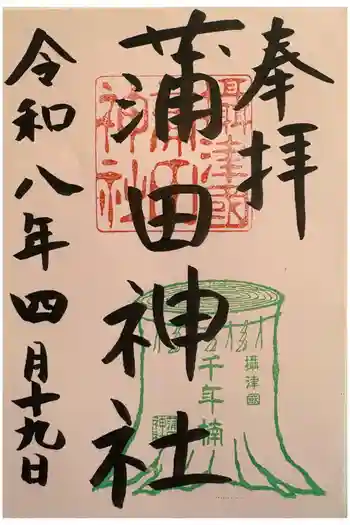 奉拝
攝津國
蒲田
神社
蒲田神社
攝津國
千年楠
令和八年四月十九日